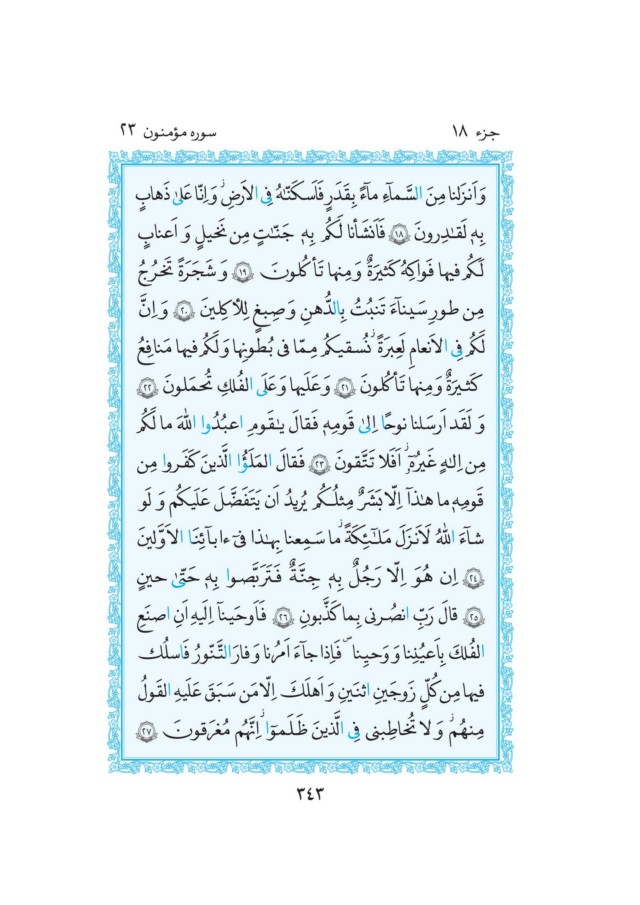 جزء ١٨
سوره مؤمنون ٢٣
وَاَنزَلنا مِنَ السَّمآءِ ماءً بِقَدَرٍ فَاَسكَنّٰهُ فِی الاَرضِۖ وَاِنّا عَلىٰ ذَهابٍ
بِهٖ لَقٰدِرونَ ١٨ فَاَنشَأنا لَكُم بِهٖ جَنّٰتٍ مِن نَخيلٍ وَ اَعنابٍ
لَكُم فيها فَواكِهُ كَثيرَةٌ وَمِنها تَأكُلونَ ١٩ وَ شَجَرَةً تَخرُجُ
مِن طورِ سَيناءَ تَنبُتُ بِالدُّهنِ وَ صِبغٍ لِلأٰكِلينَ ٢٠ وَ اِنَّ
لَكُم فِی الاَنعامِ لَعِبرَةًۖ نُسقيكُم مِمّا فی بُطونِها وَلَكُم فيها مَنافِعُ
كَثيرَةٌ وَمِنها تَأكُلونَ ٢١ وَ عَلَيها وَعَلَی الفُلكِ تُحمَلونَ ٢٢
وَ لَقَد اَرسَلنا نوحًا اِلىٰ قَومِهٖ فَقالَ يٰقَومِ اعبُدُوا اللّٰهَ ما لَكُم
مِن اِلٰهٍ غَيرُهٗۤۖ اَفَلا تَتَّقونَ ٢٣ فَقالَ المَلَؤُا الَّذينَ كَفَروا مِن
قَومِهٖ ما هٰذاۤ اِلّا بَشَرٌ مِثلُكُم يُريدُ اَن يَتَفَضَّلَ عَلَيكُم وَ لَو
شاءَ اللّٰهُ لَاَنزَلَ مَلٰئِكَةً ما سَمِعنا بِهٰذا فیۤ ءابآئِنَا الاَوَّلينَ
٢٤ اِن هُوَ اِلّا رَجُلٌ بِهٖ جِنَّةٌ فَتَرَبَّصوا بِهٖ حَتّىٰ حينٍ
٢٥ قالَ رَبِّ انصُرنی بِما كَذَّبونِ ٢٦ فَاَوحَيناۤ اِلَيهِ اَنِ اصنَعِ
الفُلكَ بِاَعيُنِنا وَ وَحيِنا فَاِذا جآءَ اَمرُنا وَ فارَ التَّنّورُ فَاسلُك
فيها مِن كُلٍّ زَوجَينِ اثنَينِ وَ اَهلَكَ اِلّا مَن سَبَقَ عَلَيهِ القَولُ
مِنهُمۖ وَ لا تُخاطِبنی فِی الَّذينَ ظَلَموۤاۖ اِنَّهُم مُغرَقونَ ٢٧
٣٤٣